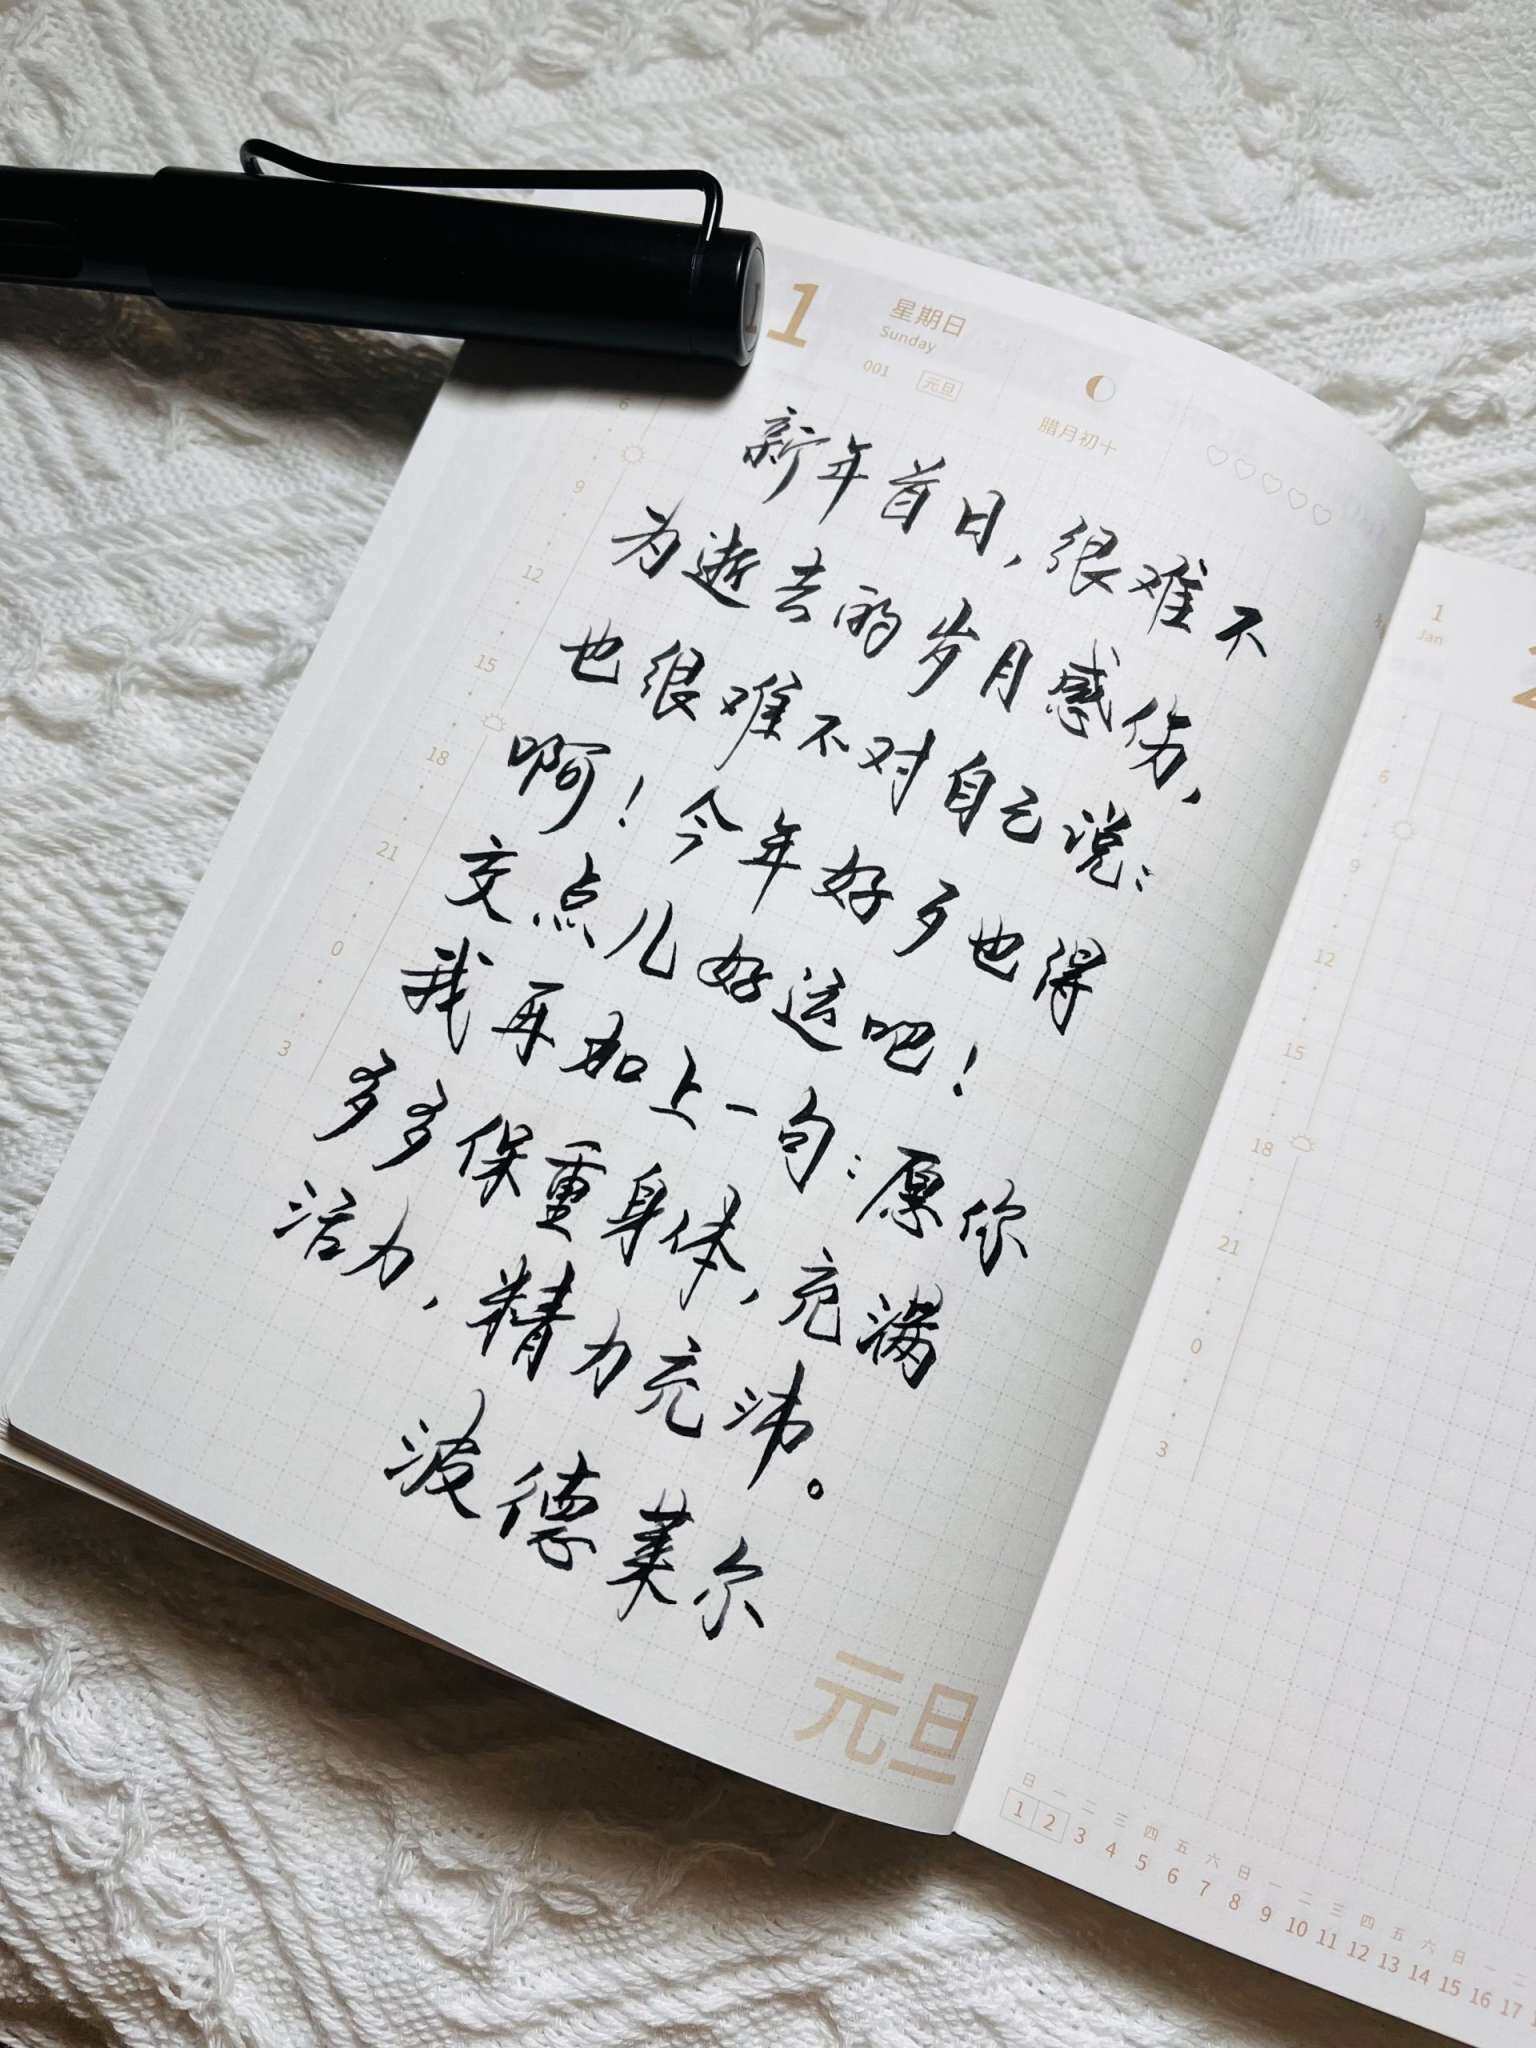 1
星期日
Sunday
001 元旦
腊月初十
新年首日，很难不
为逝去的岁月感伤，
也很难不对自己说：
啊！今年好歹也得
交点儿好运吧！
我再加上一句：愿你
多多保重身体，充满
活力，精力充沛。
波德莱尔
元旦
6
9
12
15
18
21
0
3
1
Jan
6
9
12
15
18
21
0
3
日 一 二 三 四 五 六 日 一 二 三 四 五 六 日 一 二
1 2 3 4 5 6 7 8 9 10 11 12 13 14 15 16 17